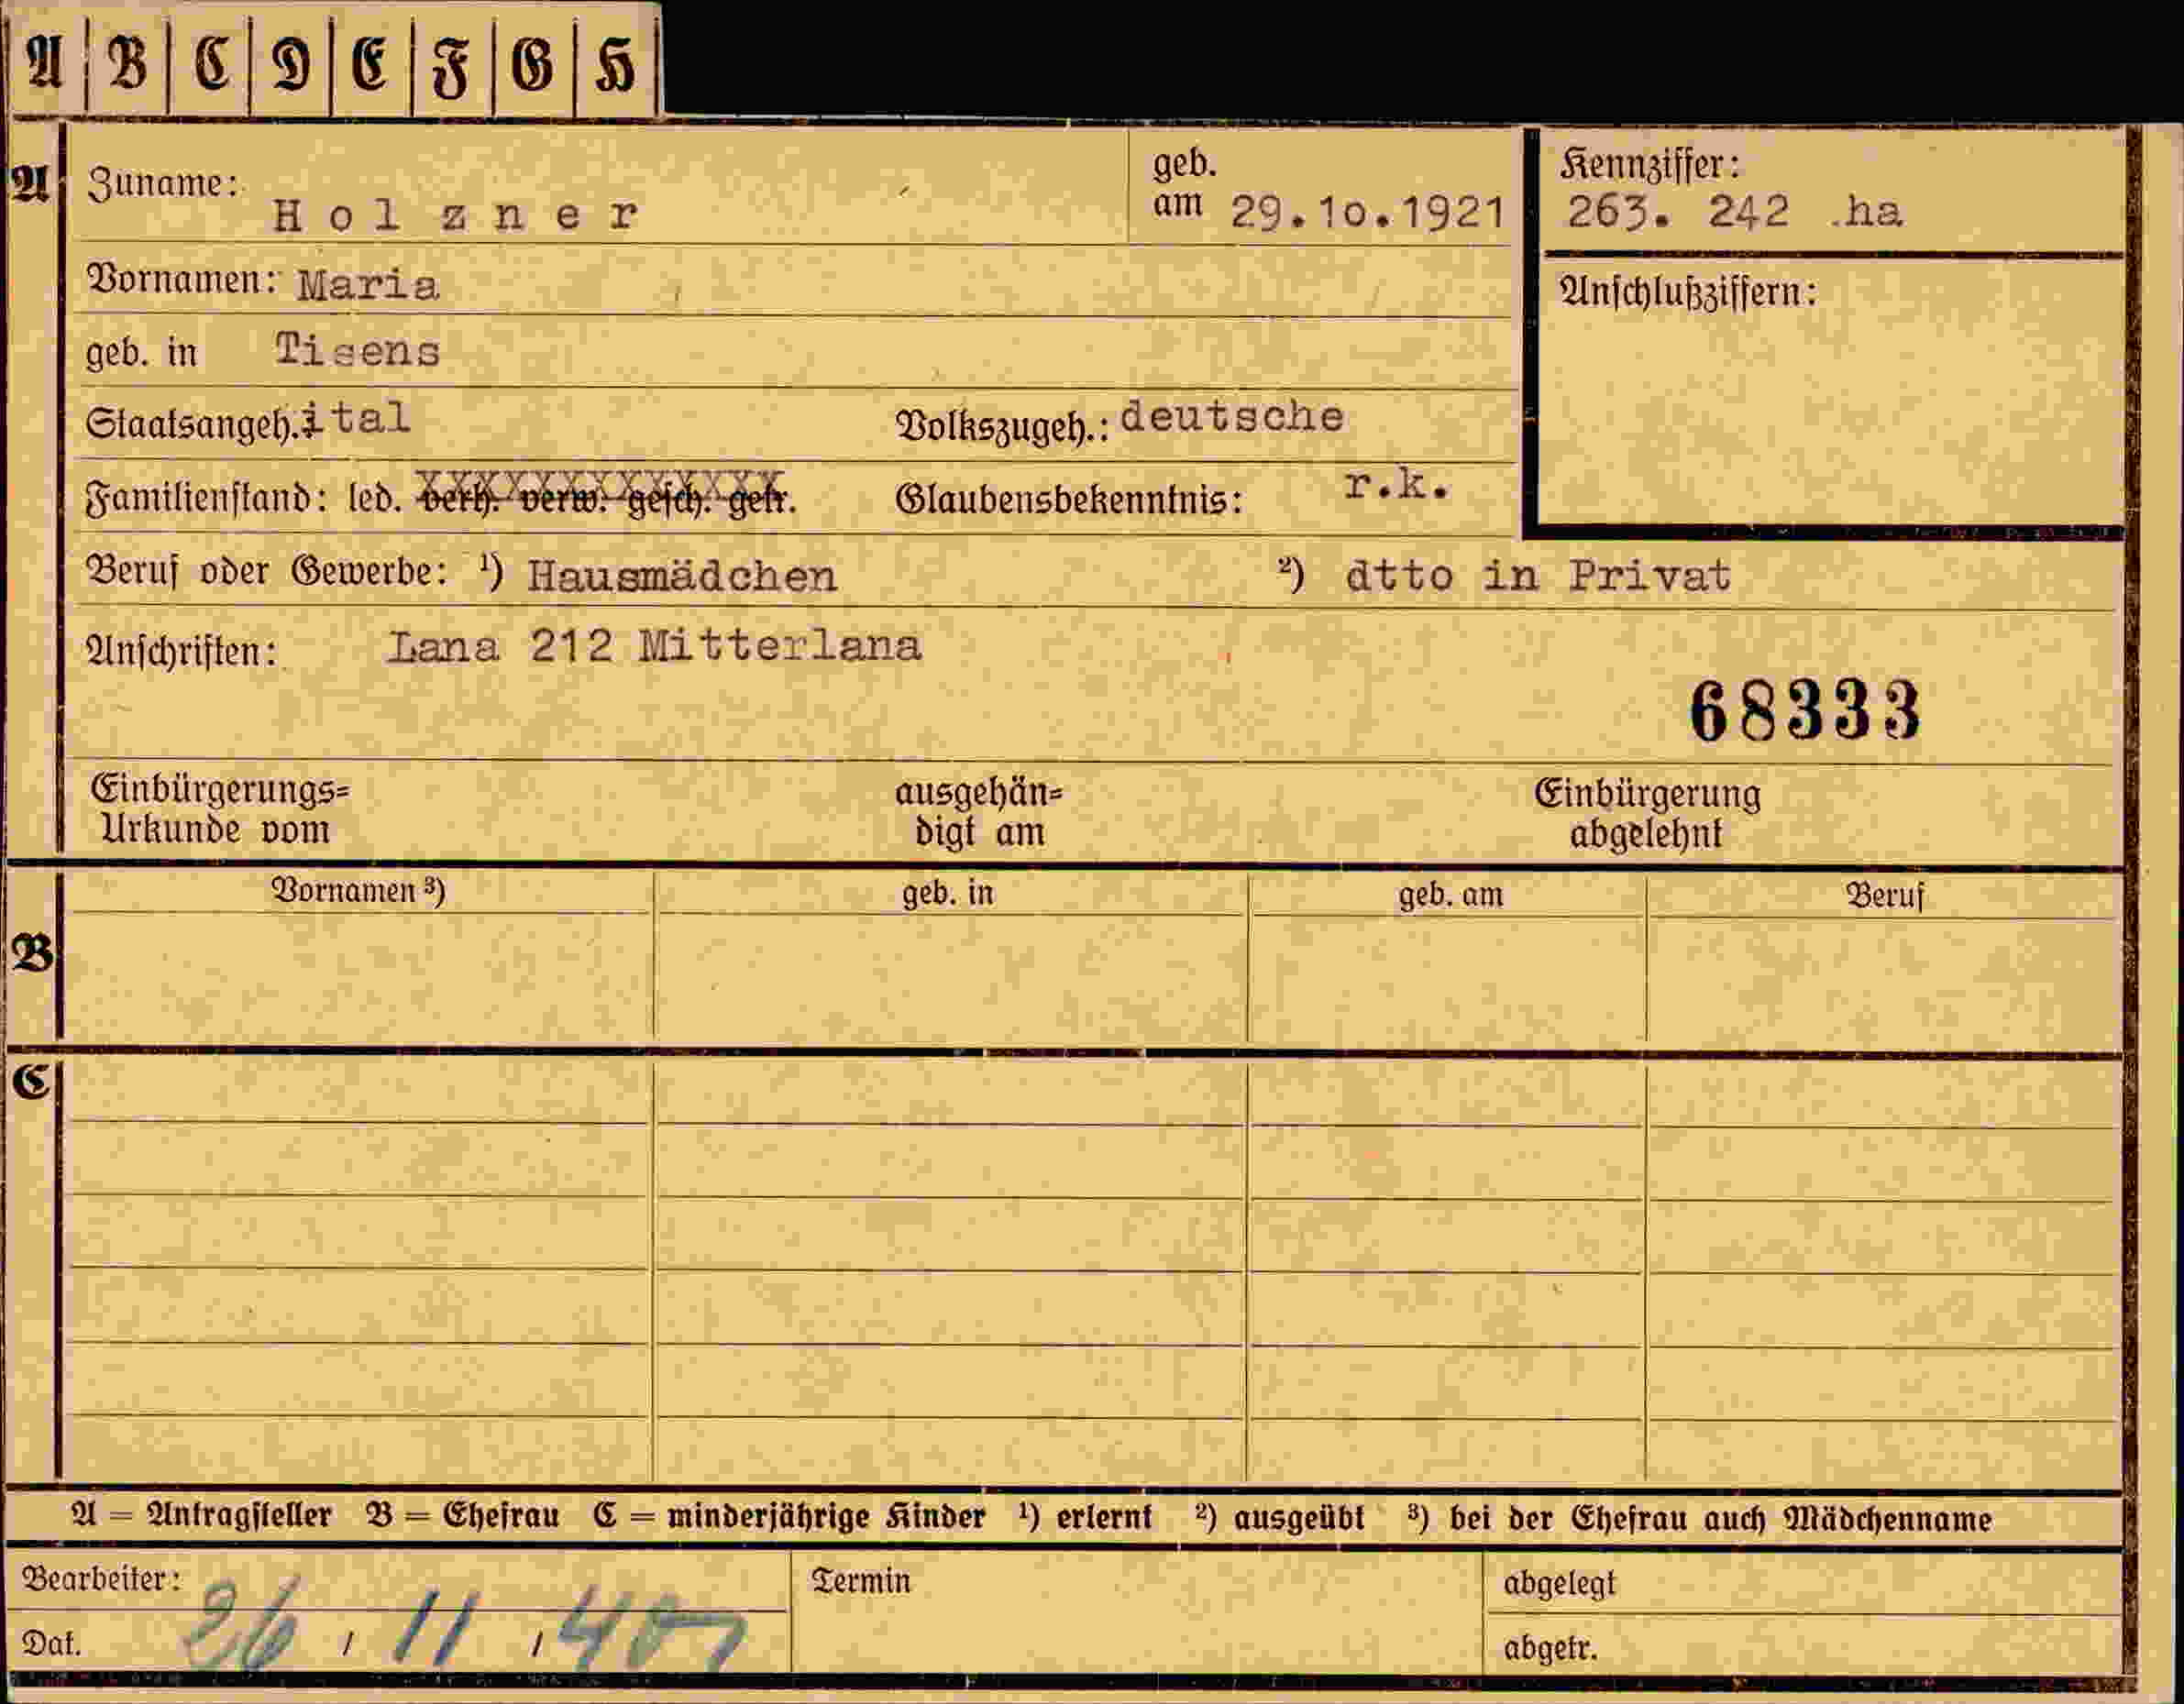 A B C D E F G H
A
Zuname: Holzner
geb. am 29.10.1921
Kennziffer:
263. 242 .ha
Vornamen: Maria
Anschlußziffern:
geb. in Tisens
Staatsangeh. ital Volkszugeh.: deutsche
Familienstand: led. verh. verw. gesch. getr. Glaubensbekenntnis: r.k.
Beruf oder Gewerbe: ¹) Hausmädchen ²) dtto in Privat
Anschriften: Lana 212 Mitterlana
68333
Einbürgerungs= ausgehän= Einbürgerung
Urkunde vom digt am abgelehnt
Vornamen ³) geb. in geb. am Beruf
B
C
A = Antragsteller B = Ehefrau C = minderjährige Kinder ¹) erlernt ²) ausgeübt ³) bei der Ehefrau auch Mädchenname
Bearbeiter: Termin abgelegt
Dat. 26 / 11 / 40 abgetr.